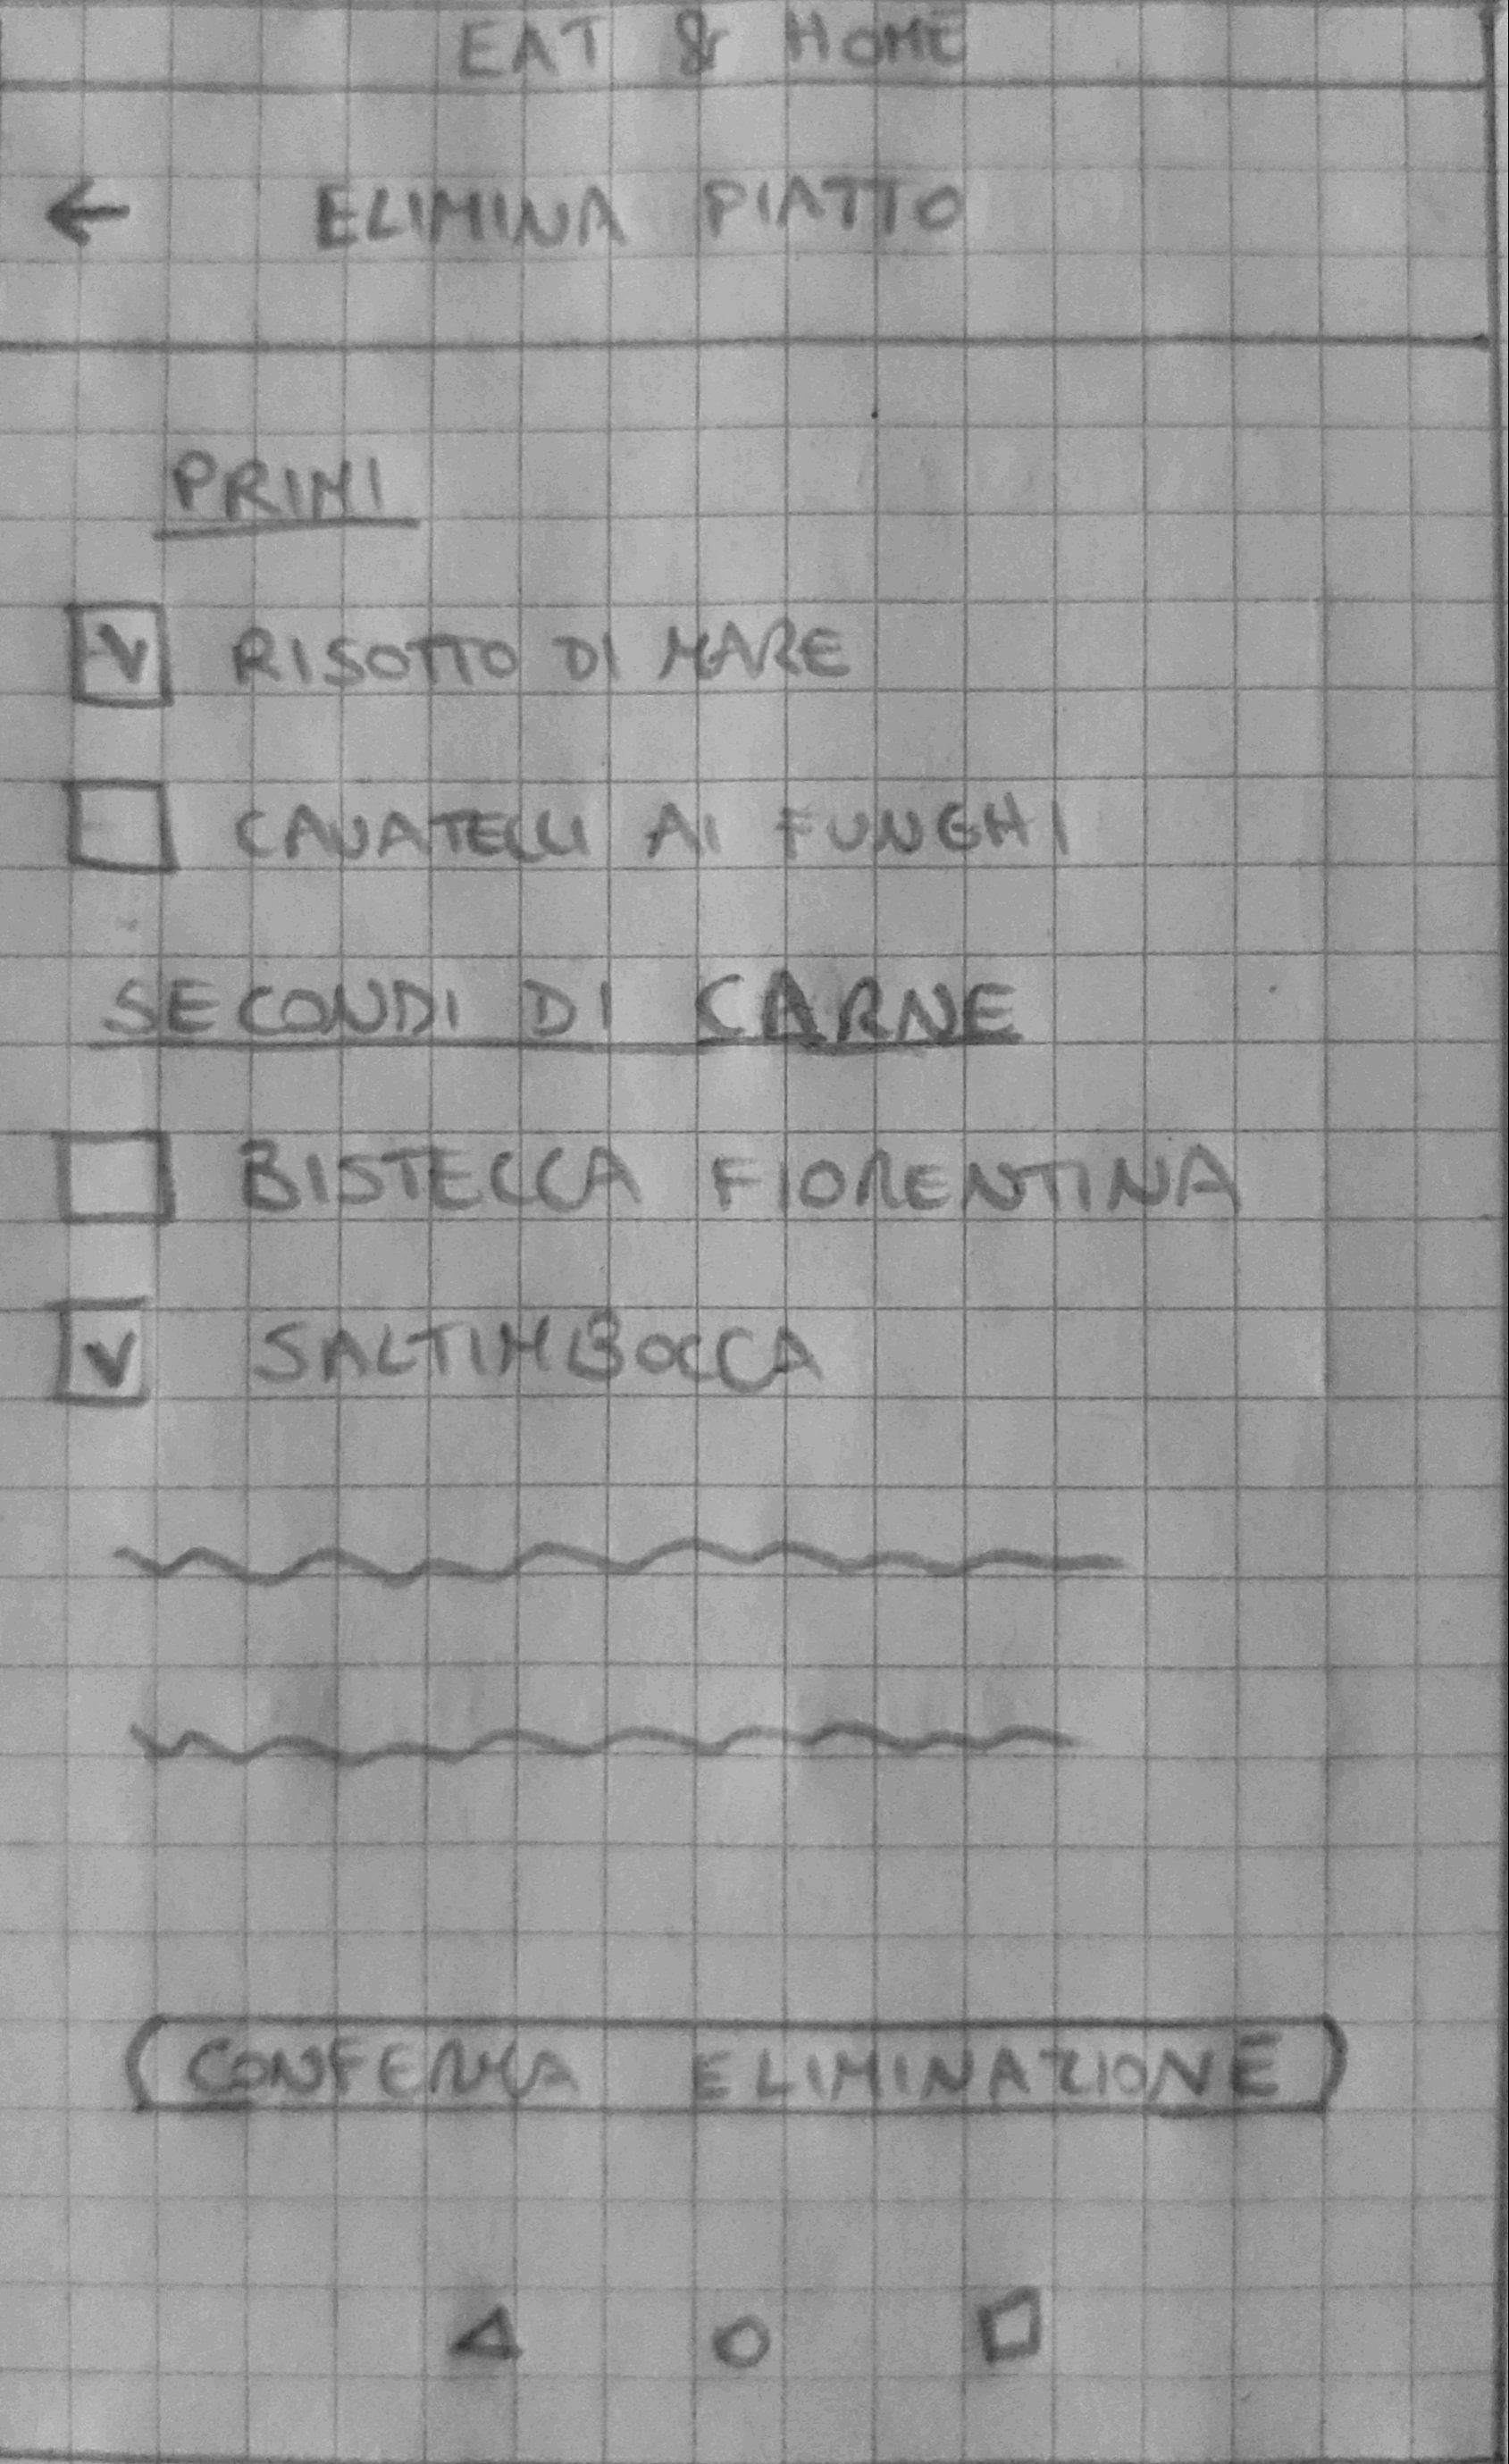 EAT & HOME
← ELIMINA PIATTO
PRIMI
RISOTTO DI MARE
CAVATELLI AI FUNGHI
SECONDI DI CARNE
BISTECCA FIORENTINA
SALTIMBOCCA
CONFERMA ELIMINAZIONE